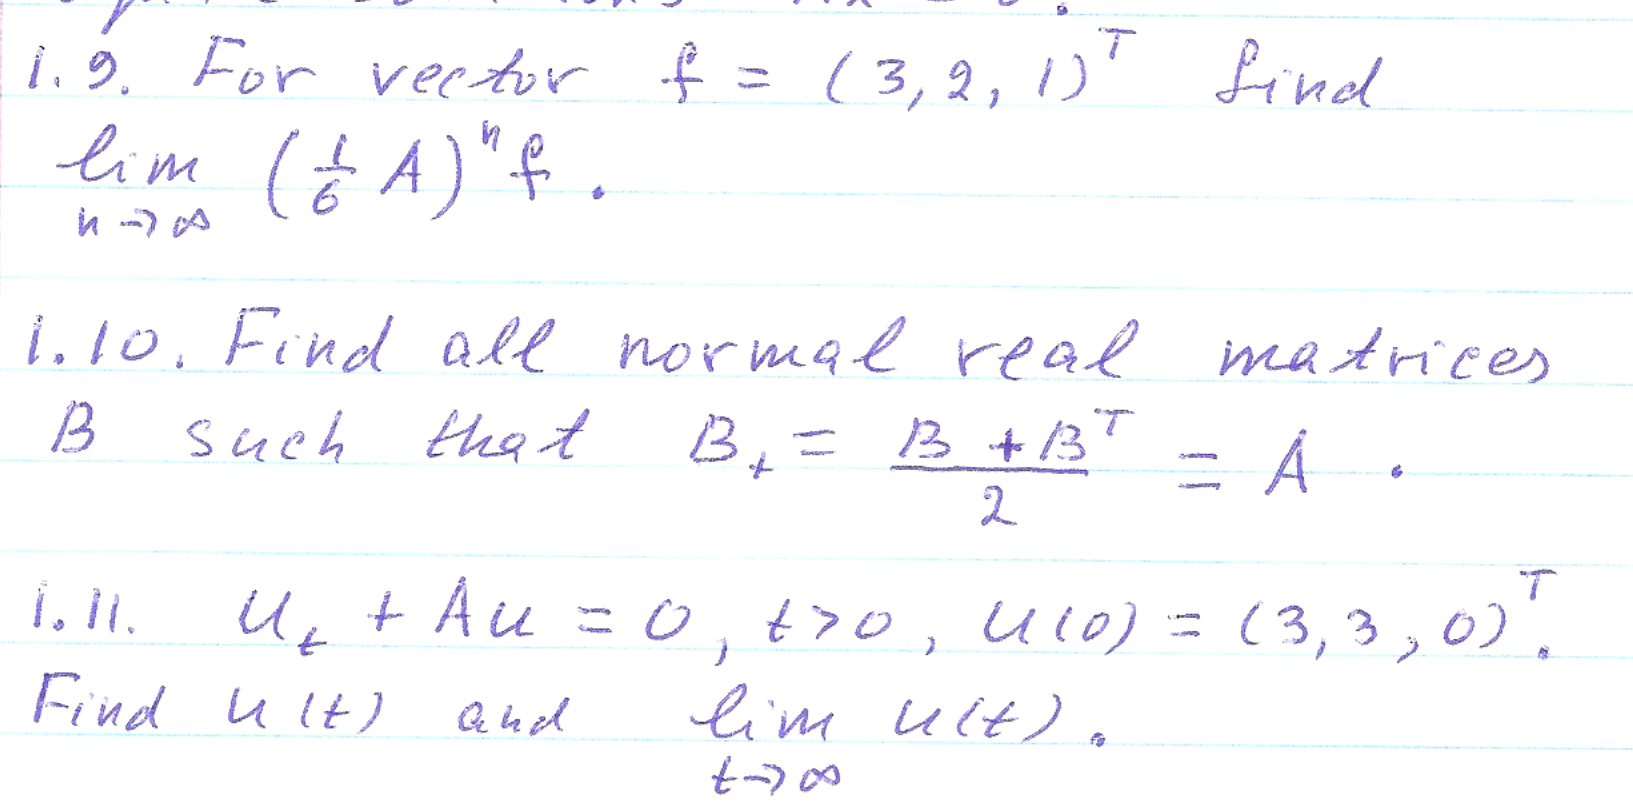 1.9. For vector f = (3, 2, 1)^T find
lim_{n→∞} (1/6 A)^n f.
1.10. Find all normal real matrices
B such that B_+ = (B + B^T)/2 = A.
1.11. u_t + Au = 0, t>0, u(0) = (3, 3, 0)^T.
Find u(t) and lim_{t→∞} u(t).